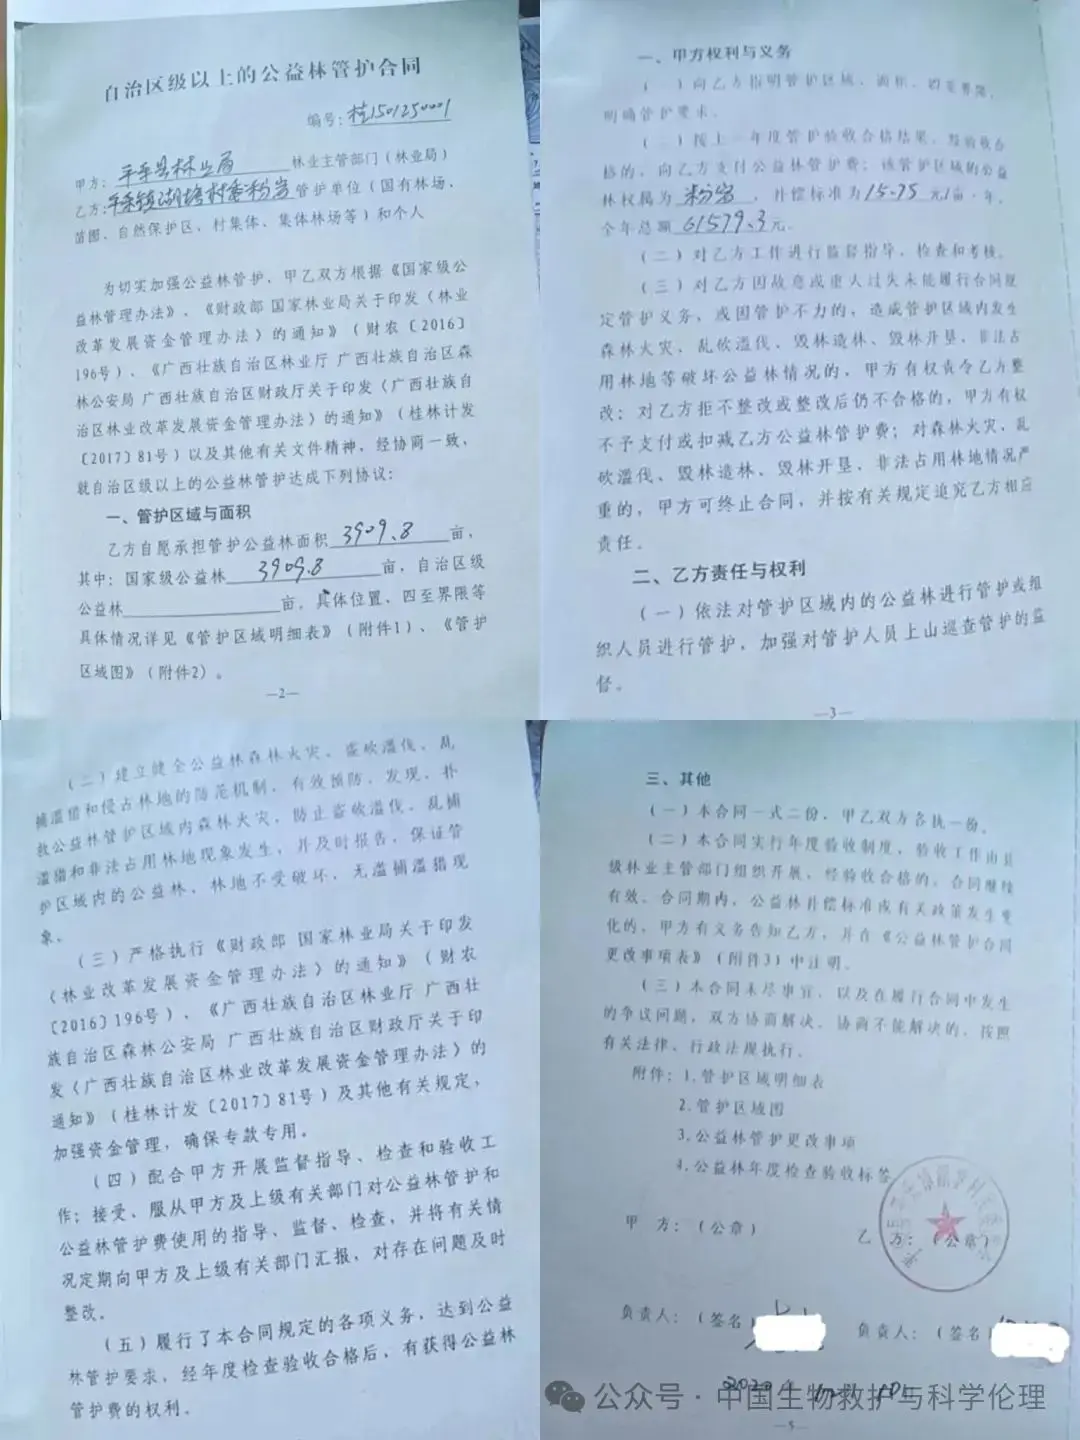 自治区级以上的公益林管护合同
编号：桂1501250001
甲方：平乐县林业局 林业主管部门（林业局）
乙方：平乐镇湖塘村委粉岩 管护单位（国有林场、
苗圃、自然保护区、村集体、集体林场等）和个人
为切实加强公益林管护，甲乙双方根据《国家级公
益林管理办法》、《财政部 国家林业局关于印发〈林业
改革发展资金管理办法〉的通知》（财农〔2016〕
196号）、《广西壮族自治区林业厅 广西壮族自治区森
林公安局 广西壮族自治区财政厅关于印发〈广西壮族自
治区林业改革发展资金管理办法〉的通知》（桂林计发
〔2017〕81号）以及其他有关文件精神，经协商一致，
就自治区级以上的公益林管护达成下列协议：
一、管护区域与面积
乙方自愿承担管护公益林面积3909.8亩，
其中：国家级公益林3909.8亩，自治区级
公益林亩，具体位置、四至界限等
具体情况详见《管护区域明细表》（附件1）、《管护
区域图》（附件2）。
—2—
一、甲方权利与义务
（一）向乙方指明管护区域、面积、四至界限，
明确管护要求。
（二）按上一年度管护验收合格结果，经验收合
格的，向乙方支付公益林管护费；该管护区域的公益
林权属为粉岩，补偿标准为15.75元/亩·年，
全年总额61579.3元。
（二）对乙方工作进行监督指导、检查和考核。
（三）对乙方因故意或重大过失未能履行合同规
定管护义务，或因管护不力的，造成管护区域内发生
森林火灾、乱砍滥伐、毁林造林、毁林开垦、非法占
用林地等破坏公益林情况的，甲方有权责令乙方整
改；对乙方拒不整改或整改后仍不合格的，甲方有权
不予支付或扣减乙方公益林管护费；对森林火灾、乱
砍滥伐、毁林造林、毁林开垦、非法占用林地情况严
重的，甲方可终止合同，并按有关规定追究乙方相应
责任。
二、乙方责任与权利
（一）依法对管护区域内的公益林进行管护或组
织人员进行管护，加强对管护人员上山巡查管护的监
督。
—3—
（二）建立健全公益林森林火灾、盗砍滥伐、乱
捕滥猎和侵占林地的防范机制，有效预防、发现、扑
救公益林管护区域内森林火灾，防止盗砍滥伐、乱捕
滥猎和非法占用林地现象发生，并及时报告，保证管
护区域内的公益林、林地不受破坏，无滥捕滥猎现
象。
（三）严格执行《财政部 国家林业局关于印发
〈林业改革发展资金管理办法〉的通知》（财农
〔2016〕196号）、《广西壮族自治区林业厅 广西壮
族自治区森林公安局 广西壮族自治区财政厅关于印
发〈广西壮族自治区林业改革发展资金管理办法〉的
通知》（桂林计发〔2017〕81号）及其他有关规定，
加强资金管理，确保专款专用。
（四）配合甲方开展监督指导、检查和验收工
作；接受、服从甲方及上级有关部门对公益林管护和
公益林管护费使用的指导、监督、检查，并将有关情
况定期向甲方及上级有关部门汇报，对存在问题及时
整改。
（五）履行了本合同规定的各项义务，达到公益
林管护要求，经年度检查验收合格后，有获得公益林
管护费的权利。
三、其他
（一）本合同一式二份，甲乙双方各执一份。
（二）本合同实行年度验收制度，验收工作由县
级林业主管部门组织开展，经验收合格的，合同继续
有效。合同期内，公益林补偿标准或有关政策发生变
化的，甲方有义务告知乙方，并在《公益林管护合同
更改事项表》（附件3）中注明。
（三）本合同未尽事宜，以及在履行合同中发生
的争议问题，双方协商解决，协商不能解决的，按照
有关法律、行政法规执行。
附件：1.管护区域明细表
2.管护区域图
3.公益林管护更改事项
4.公益林年度检查验收标签
甲 方：（公章） 乙 方：（公章）
负责人：（签名） 负责人：（签名）
2020年
公众号·中国生物救护与科学伦理
—5—